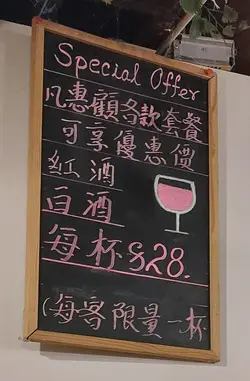 Special Offer
凡惠顧各款套餐
可享優惠價
紅酒
白酒
每杯$28.
(每客限量一杯